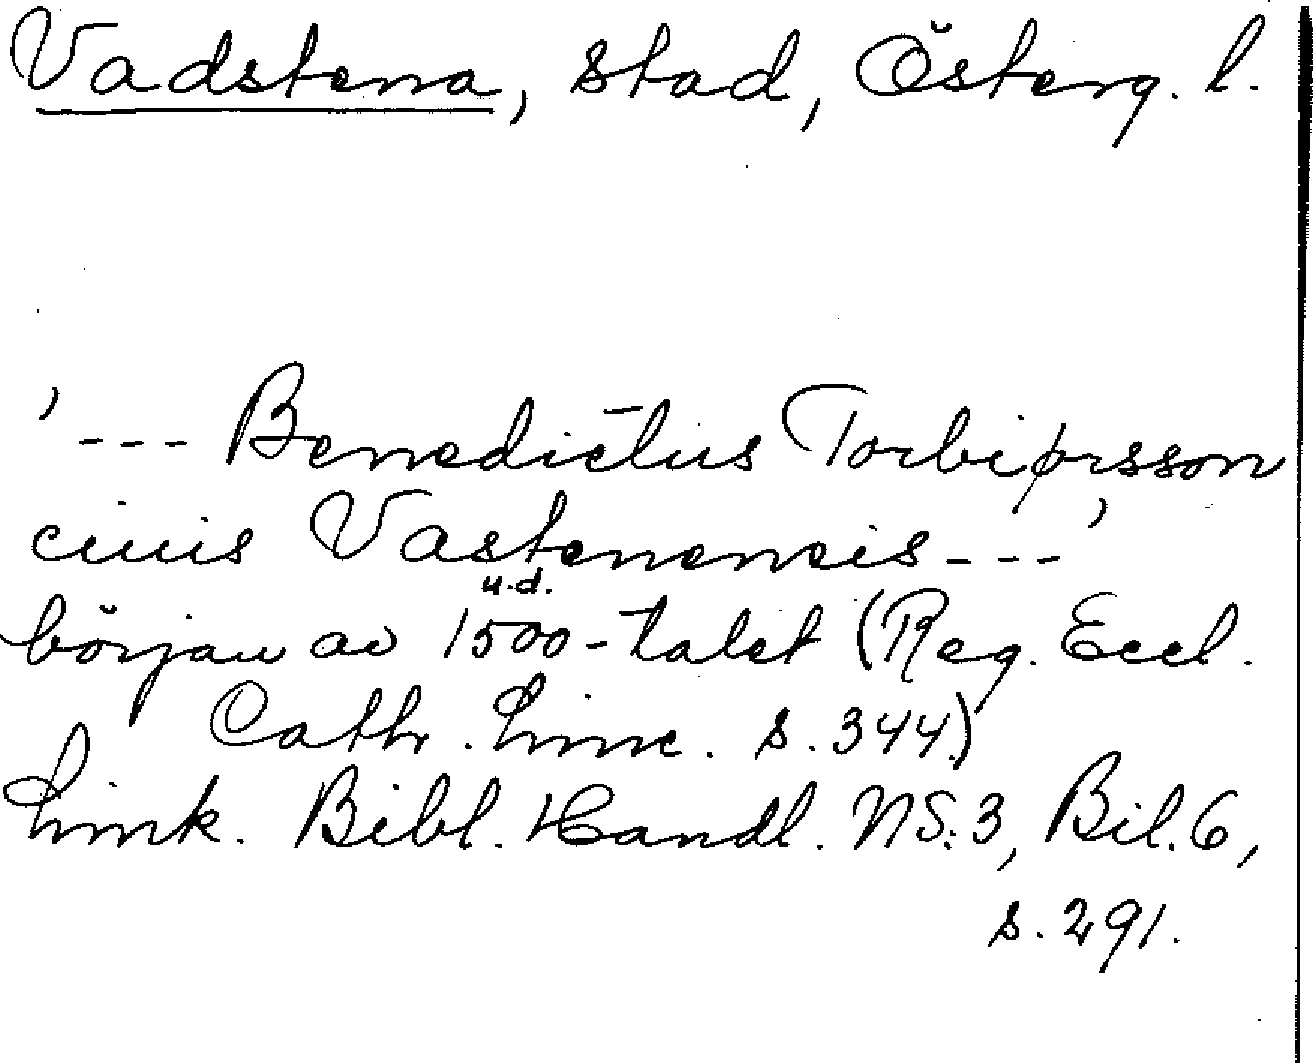 Vadstena, stad, Österg. l.
'--- Benedictus Torbiørsson
ciuis Vastenensis---'
u.d.
början av 1500-talet (Reg. Eccl.
Cath. Linc. s. 344)
Link. Bibl. Handl. NS:3, Bil. 6,
s. 291.